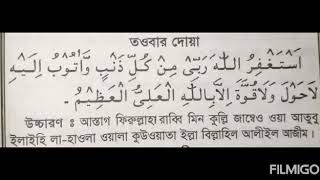 তওবার দোয়া
اَسْتَغْفِرُ اللّٰهَ رَبِّىْ مِنْ كُلِّ ذَنْۢبٍ وَّاَتُوْبُ اِلَيْهِ
لَاحَوْلَ وَلَاقُوَّةَ اِلَّابِاللّٰهِ الْعَلِىُّ الْعَظِيْمُ ـ
উচ্চারণ ঃ আস্তাগ ফিরুল্লাহা রাব্বি মিন কুল্লি জাম্বেও ওয়া আতুবু
ইলাইহি লা-হাওলা ওয়ালা কুউওয়াতা ইল্লা বিল্লাহিল আলীইল আজীম।
FILMIGO